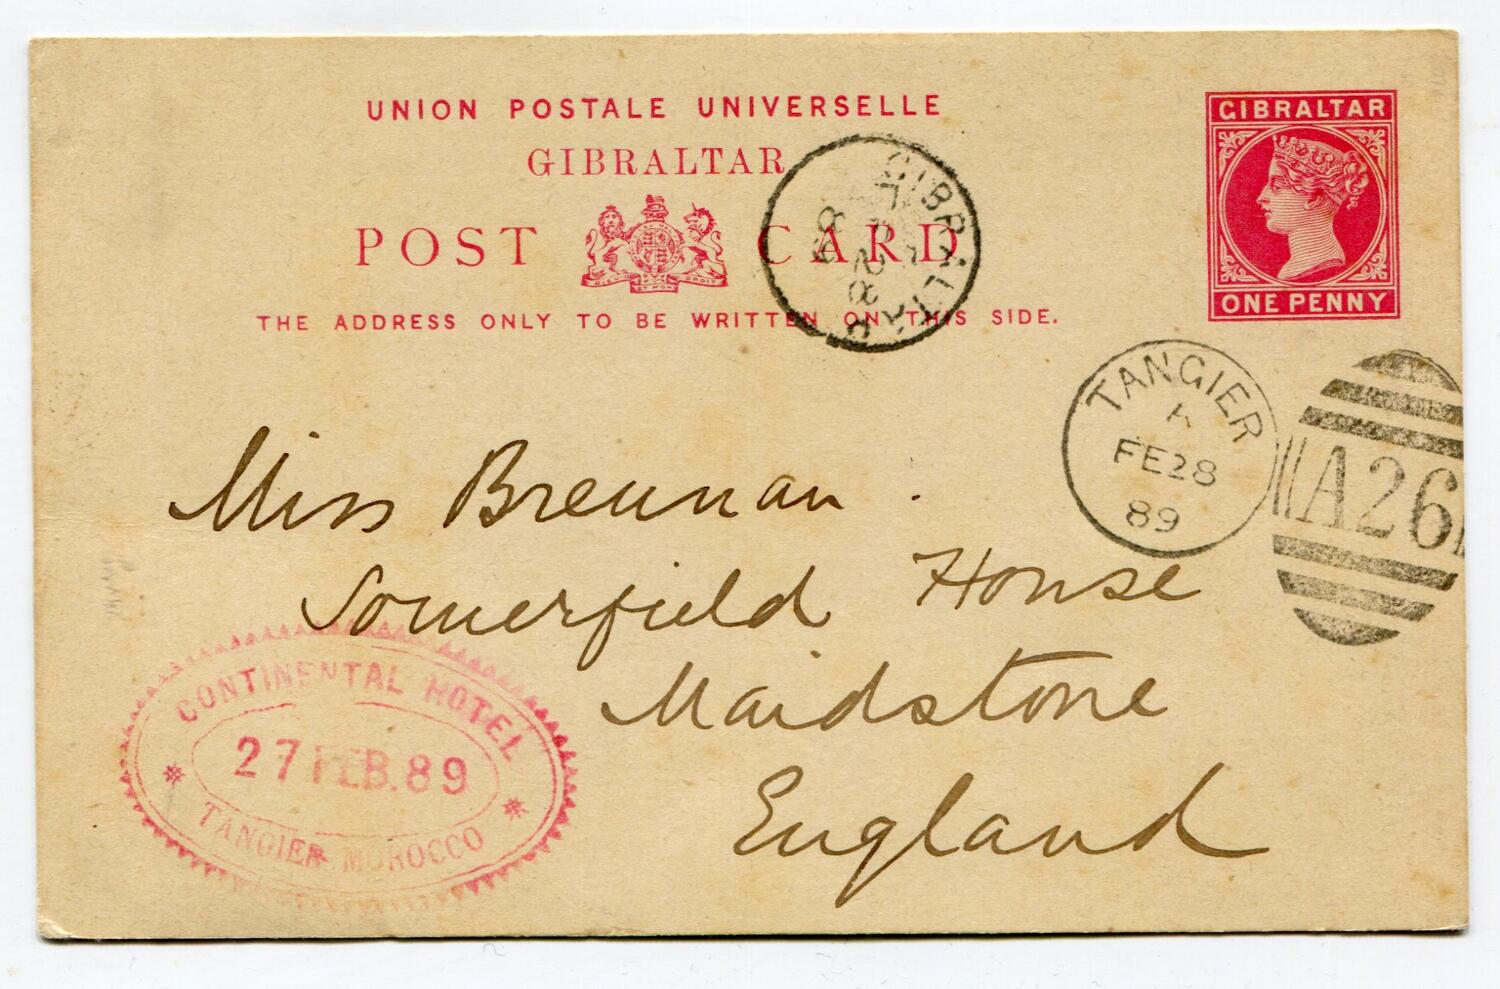 UNION POSTALE UNIVERSELLE
GIBRALTAR
POST CARD
THE ADDRESS ONLY TO BE WRITTEN ON THIS SIDE.
GIBRALTAR
ONE PENNY
GIBRALTAR
28
89
TANGIER
A
FE28
89
A26
Miss Brennan
Somerfield House
Maidstone
England
CONTINENTAL HOTEL
27 FEB. 89
TANGIER MOROCCO